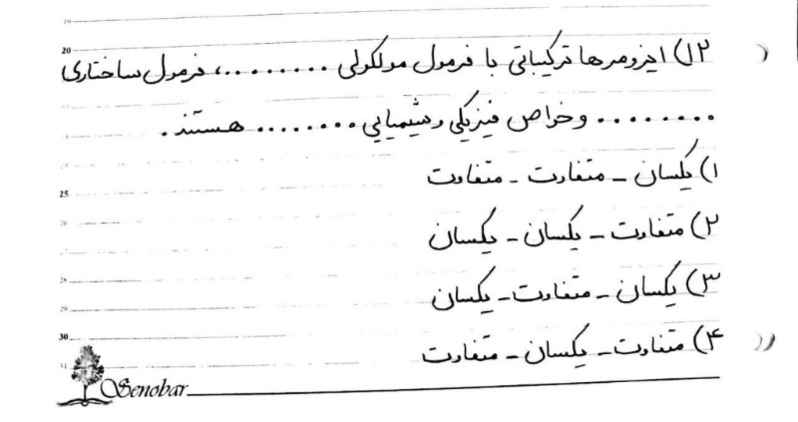 ۱۲) ایزومرها ترکیباتی با فرمول مولکولی .........، فرمول ساختاری
......... و خواص فیزیکی و شیمیایی ......... هستند.
۱) یکسان - متفاوت - متفاوت
۲) متفاوت - یکسان - یکسان
۳) یکسان - متفاوت - یکسان
۴) متفاوت - یکسان - متفاوت
20
25
30
Senobar